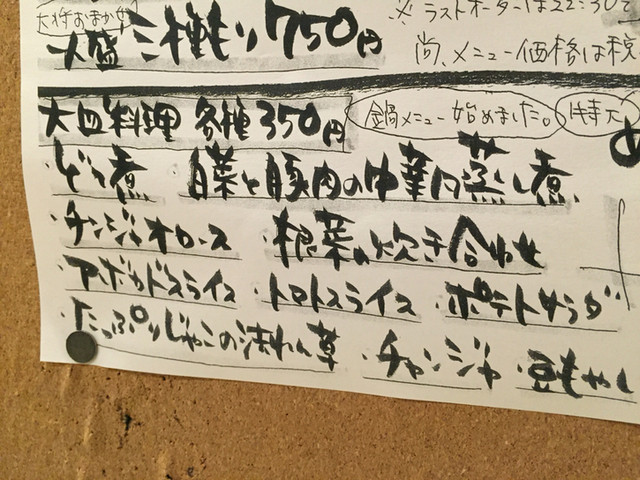 大将おまかせ
大盛 三種もり 750円
※ ラストオーダーは22:30で
尚、メニュー価格は税
大皿料理 各種 350円
鍋メニュー 始めました。
・もつ煮 ・白菜と豚肉の中華風蒸し煮
・チンジャオロース ・根菜の炊き合わせ
・アボカドスライス ・トマトスライス ・ポテトサラダ
・たっぷりじゃこの法れん草 ・チャンジャ ・豆もやし